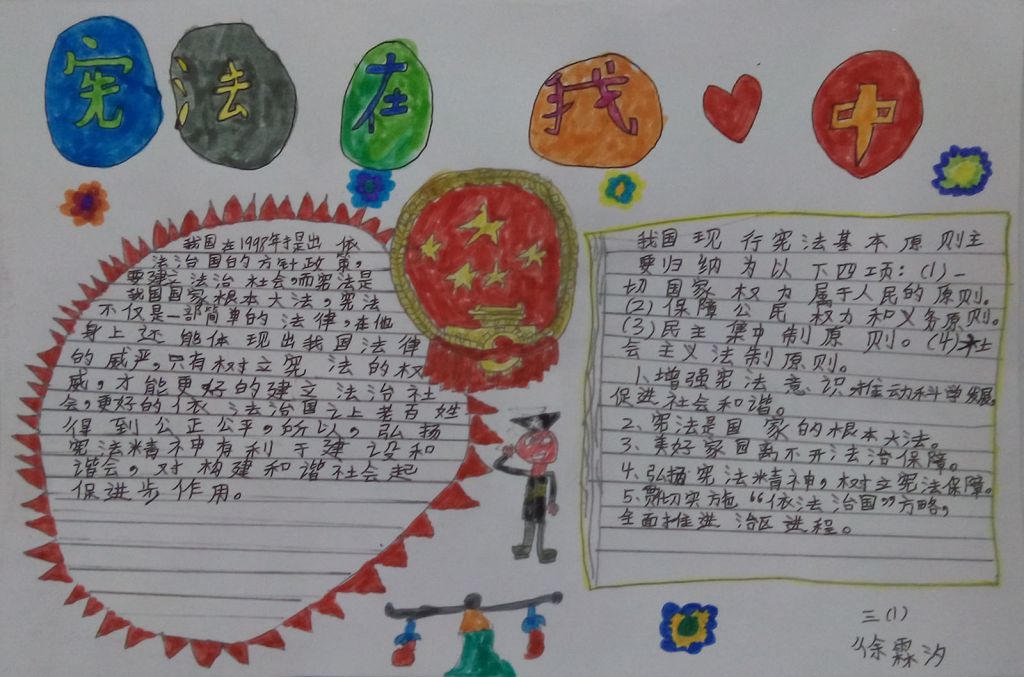 宪法在我中
我国在1998年提出 依
法治国的方针政策,
要建立法治 社会,而宪法是
我国国家根本大法,宪法
不仅是一部简单的法律,在他
身上还能体现出我国法律
的威严,只有树立宪法的权
威,才能更好的建立法治社
会,更好的依法治国之上老百姓
得到公正公平,所以,弘扬
宪法精神有利于建设和
谐会,对构建和谐社会起
促进步作用。
我国现行宪法基本原则主
要归纳为以下四项:(1)一
切国家权力属于人民的原则。
(2)保障公民权力和义务原则。
(3)民主集中制原则。(4)社
会主义法制原则。
1、增强宪法意识,推动科学发展,
促进社会和谐。
2、宪法是国家的根本大法。
3、美好家园离不开法治保障。
4、弘扬宪法精神,树立宪法保障。
5、贯切实施“依法治国”方略,
全面推进治区进程。
三(1)
徐霖汐